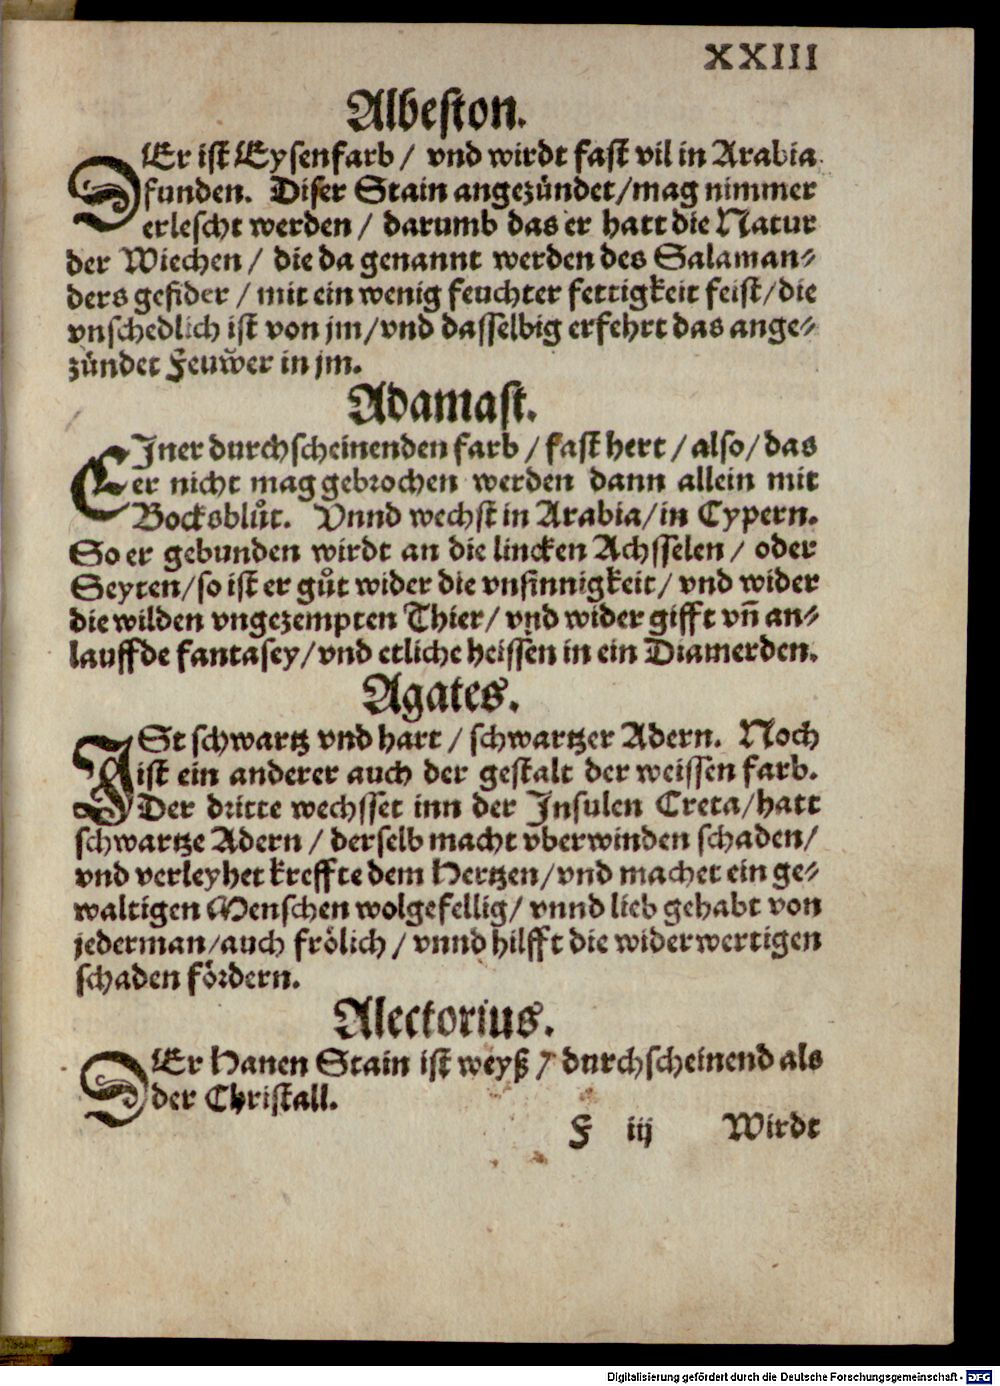 XXIII
Albeston.
DEr ist Eysenfarb / vnd wirdt fast vil in Arabia
funden. Diser Stain angezündet/mag nimmer
erlescht werden / darumb das er hatt die Natur
der Wiechen / die da genannt werden des Salaman-
ders gefider / mit ein wenig feuchter fettigkeit feist/die
vnschedlich ist von jm/vnd dasselbig erfehrt das ange-
zündet Feuwer in jm.
Adamast.
EIner durchscheinenden farb / fast hert / also/das
er nicht mag gebrochen werden dann allein mit
Bocksblůt. Vnnd wechst in Arabia/in Cypern.
So er gebunden wirdt an die lincken Achsselen / oder
Seyten/so ist er gůt wider die vnsinnigkeit/ vnd wider
die wilden vngezempten Thier/ vnd wider gifft vn̄ an-
lauffde fantasey/vnd etliche heissen in ein Diamerden.
Agates.
ISt schwartz vnd hart / schwartzer Adern. Noch
ist ein anderer auch der gestalt der weissen farb.
Der dritte wechsset inn der Insulen Creta/hatt
schwartze Adern / derselb macht vberwinden schaden/
vnd verleyhet kreffte dem Hertzen/vnd machet ein ge-
waltigen Menschen wolgefellig/ vnnd lieb gehabt von
jederman/auch frölich / vnnd hilfft die widerwertigen
schaden fördern.
Alectorius.
DEr Hanen Stain ist weyß / durchscheinend als
der Christall.
F iij Wirdt
Digitalisierung gefördert durch die Deutsche Forschungsgemeinschaft - DFG